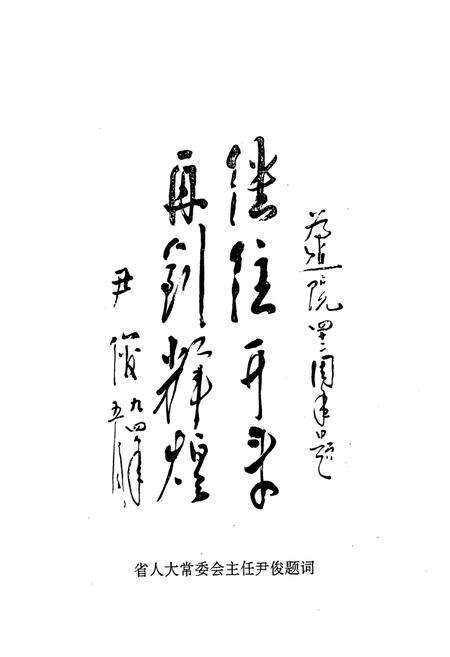 为建院周年题
继往开来
再创辉煌
尹俊
九四年
五月
省人大常委会主任尹俊题词